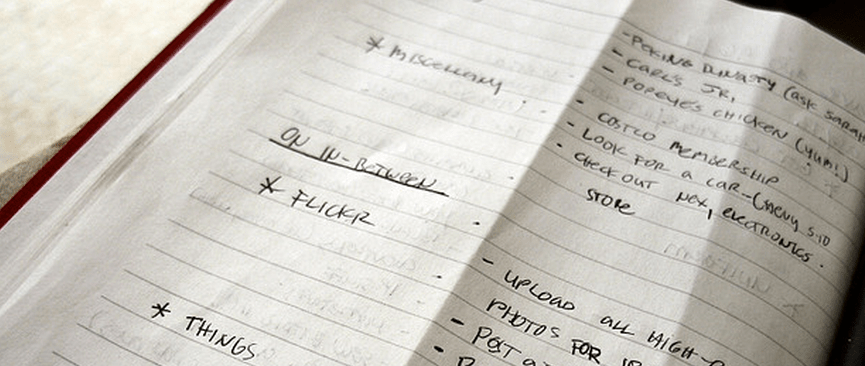 - PEKING DYNASTY (ASK SARAH
- CARL'S JR.
- POPEYES CHICKEN (YUM!)
* MISCELLANY :
- COSTCO MEMBERSHIP
- LOOK FOR A CAR - CHEVY S-10
- CHECK OUT NEX, ELECTRONICS
STORE
ON IN-BETWEEN
* FLICKR
- UPLOAD ALL HIGH-
PHOTOS FOR
- POST
* THINGS